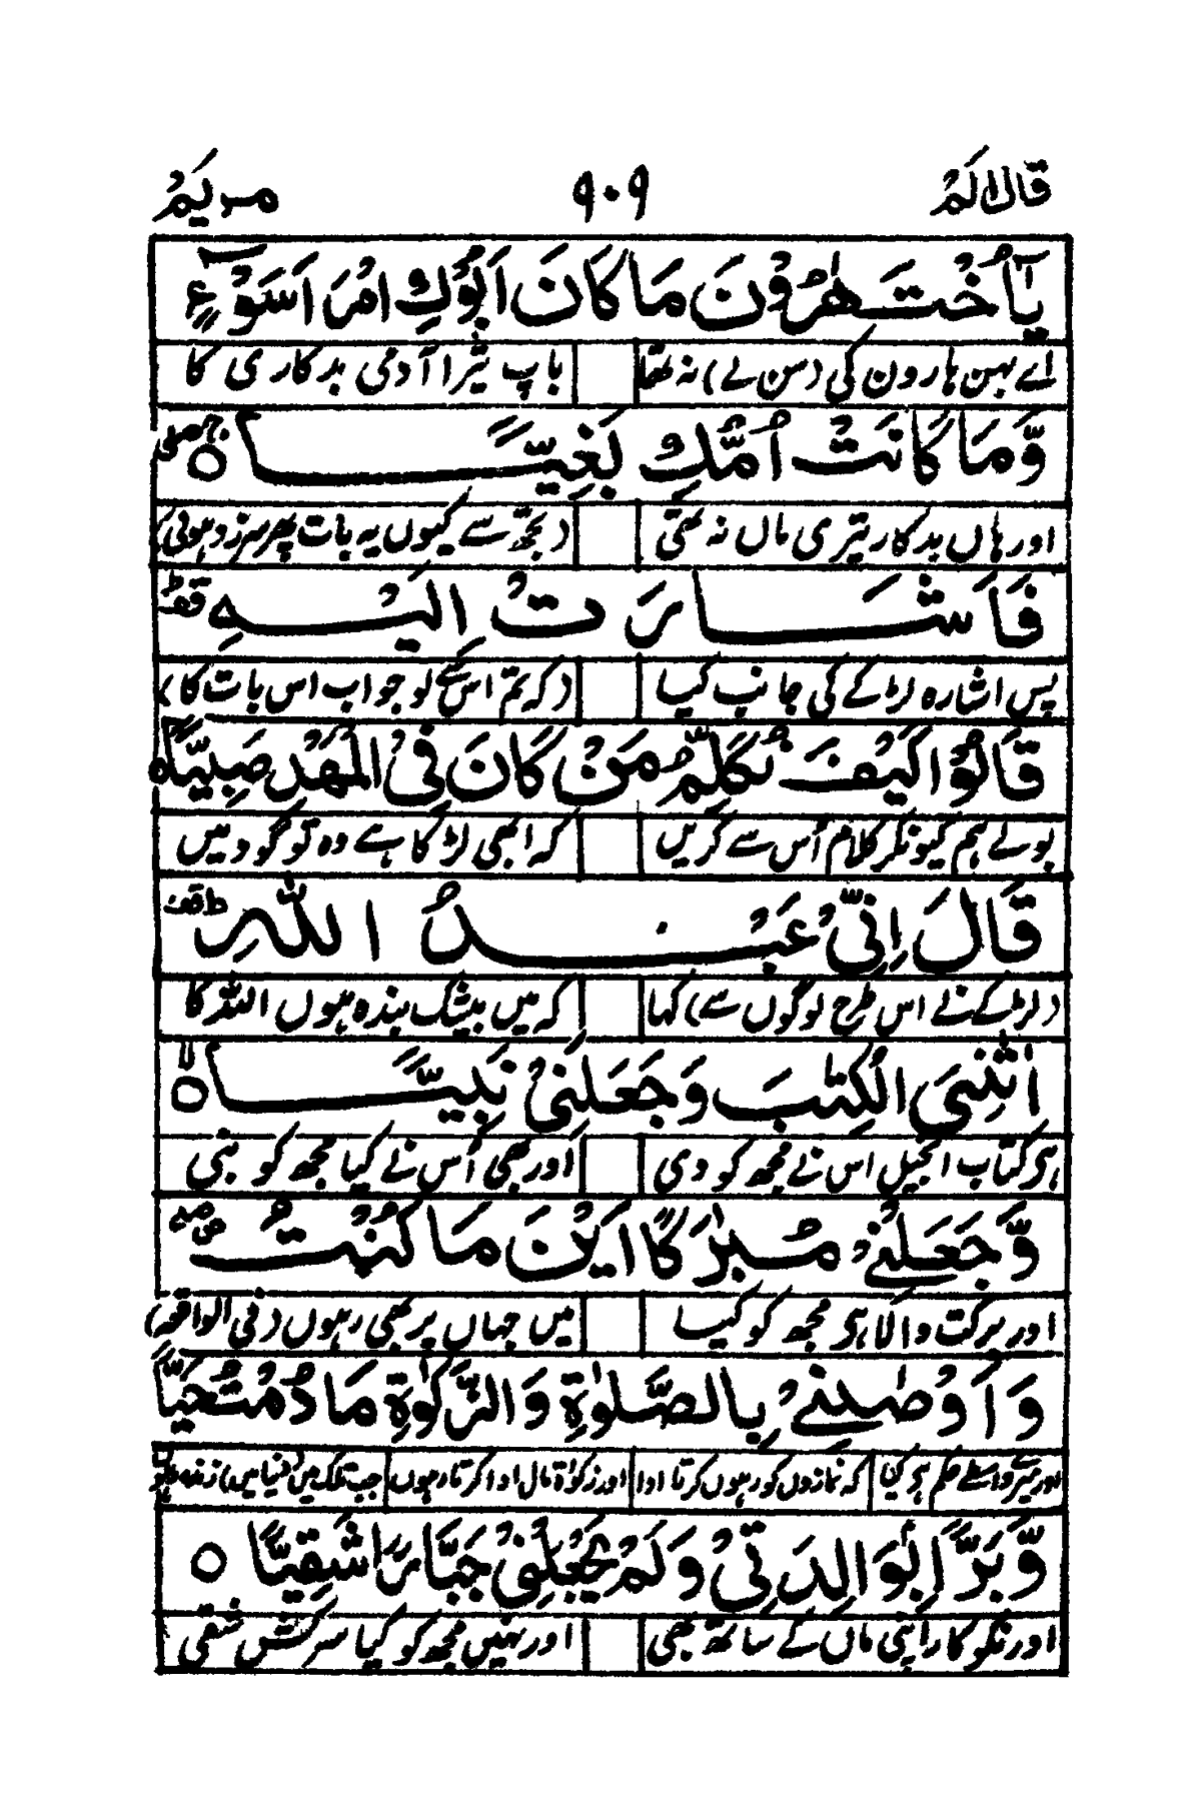 قال الم ۹۰۹ مريم
يٰۤاُخْتَ هٰرُوْنَ مَا كَانَ اَبُوْكِ امْرَاَ سَوْءٍ
اے بہن ہارون کی (سن لے) نہ تھا باپ تیرا آدمی بدکاری کا
وَّمَا كَانَتْ اُمُّكِ بَغِيًّا ۝ ج صلے
اور ہاں بدکار تیری ماں نہ تھی (تجھ سے کیوں یہ بات پھر سرزد ہوئی)
فَاَشَارَتْ اِلَيْهِ قف
پس اشارہ لڑکے کی جانب کیا (کہ تم اس سے لو جواب اس بات کا)
قَالُوْا كَيْفَ نُكَلِّمُ مَنْ كَانَ فِى الْمَهْدِ صَبِيًّا ۝
بولے ہم کیونکر کلام اُس سے کریں کہ ابھی لڑکا ہے وہ تو گود میں
قَالَ اِنِّىْ عَبْدُ اللّٰهِ ط قف
(لڑکے نے اس طرح لوگوں سے) کہا کہ میں بیشک بندہ ہوں اللہ کا
اٰتٰنِىَ الْكِتٰبَ وَجَعَلَنِىْ نَبِيًّا ۝ لا
ہر کتاب انجیل اس نے مجھ کو دی اور بھی اُس نے کیا مجھ کو نبی
وَّجَعَلَنِىْ مُبٰرَكًا اَيْنَ مَا كُنْتُ ص
اور برکت والا ہر مجھ کو کیا میں جہاں پر بھی رہوں (فی الواقعہ)
وَاَوْصٰنِىْ بِالصَّلٰوةِ وَالزَّكٰوةِ مَا دُمْتُ حَيًّا
اور میرے واسطے حکم ہر کیا کہ نمازوں کو رہوں کرتا ادا اور زکوٰۃ مال ادا کرتا رہوں جب تلک میں (دنیا میں) زندہ رہوں
وَّبَرًّۢا بِوَالِدَتِىْ وَلَمْ يَجْعَلْنِىْ جَبَّارًا شَقِيًّا ۝
اور نکوکار اپنی ماں کے ساتھ بھی اور نہیں مجھ کو کیا سرکش شقی